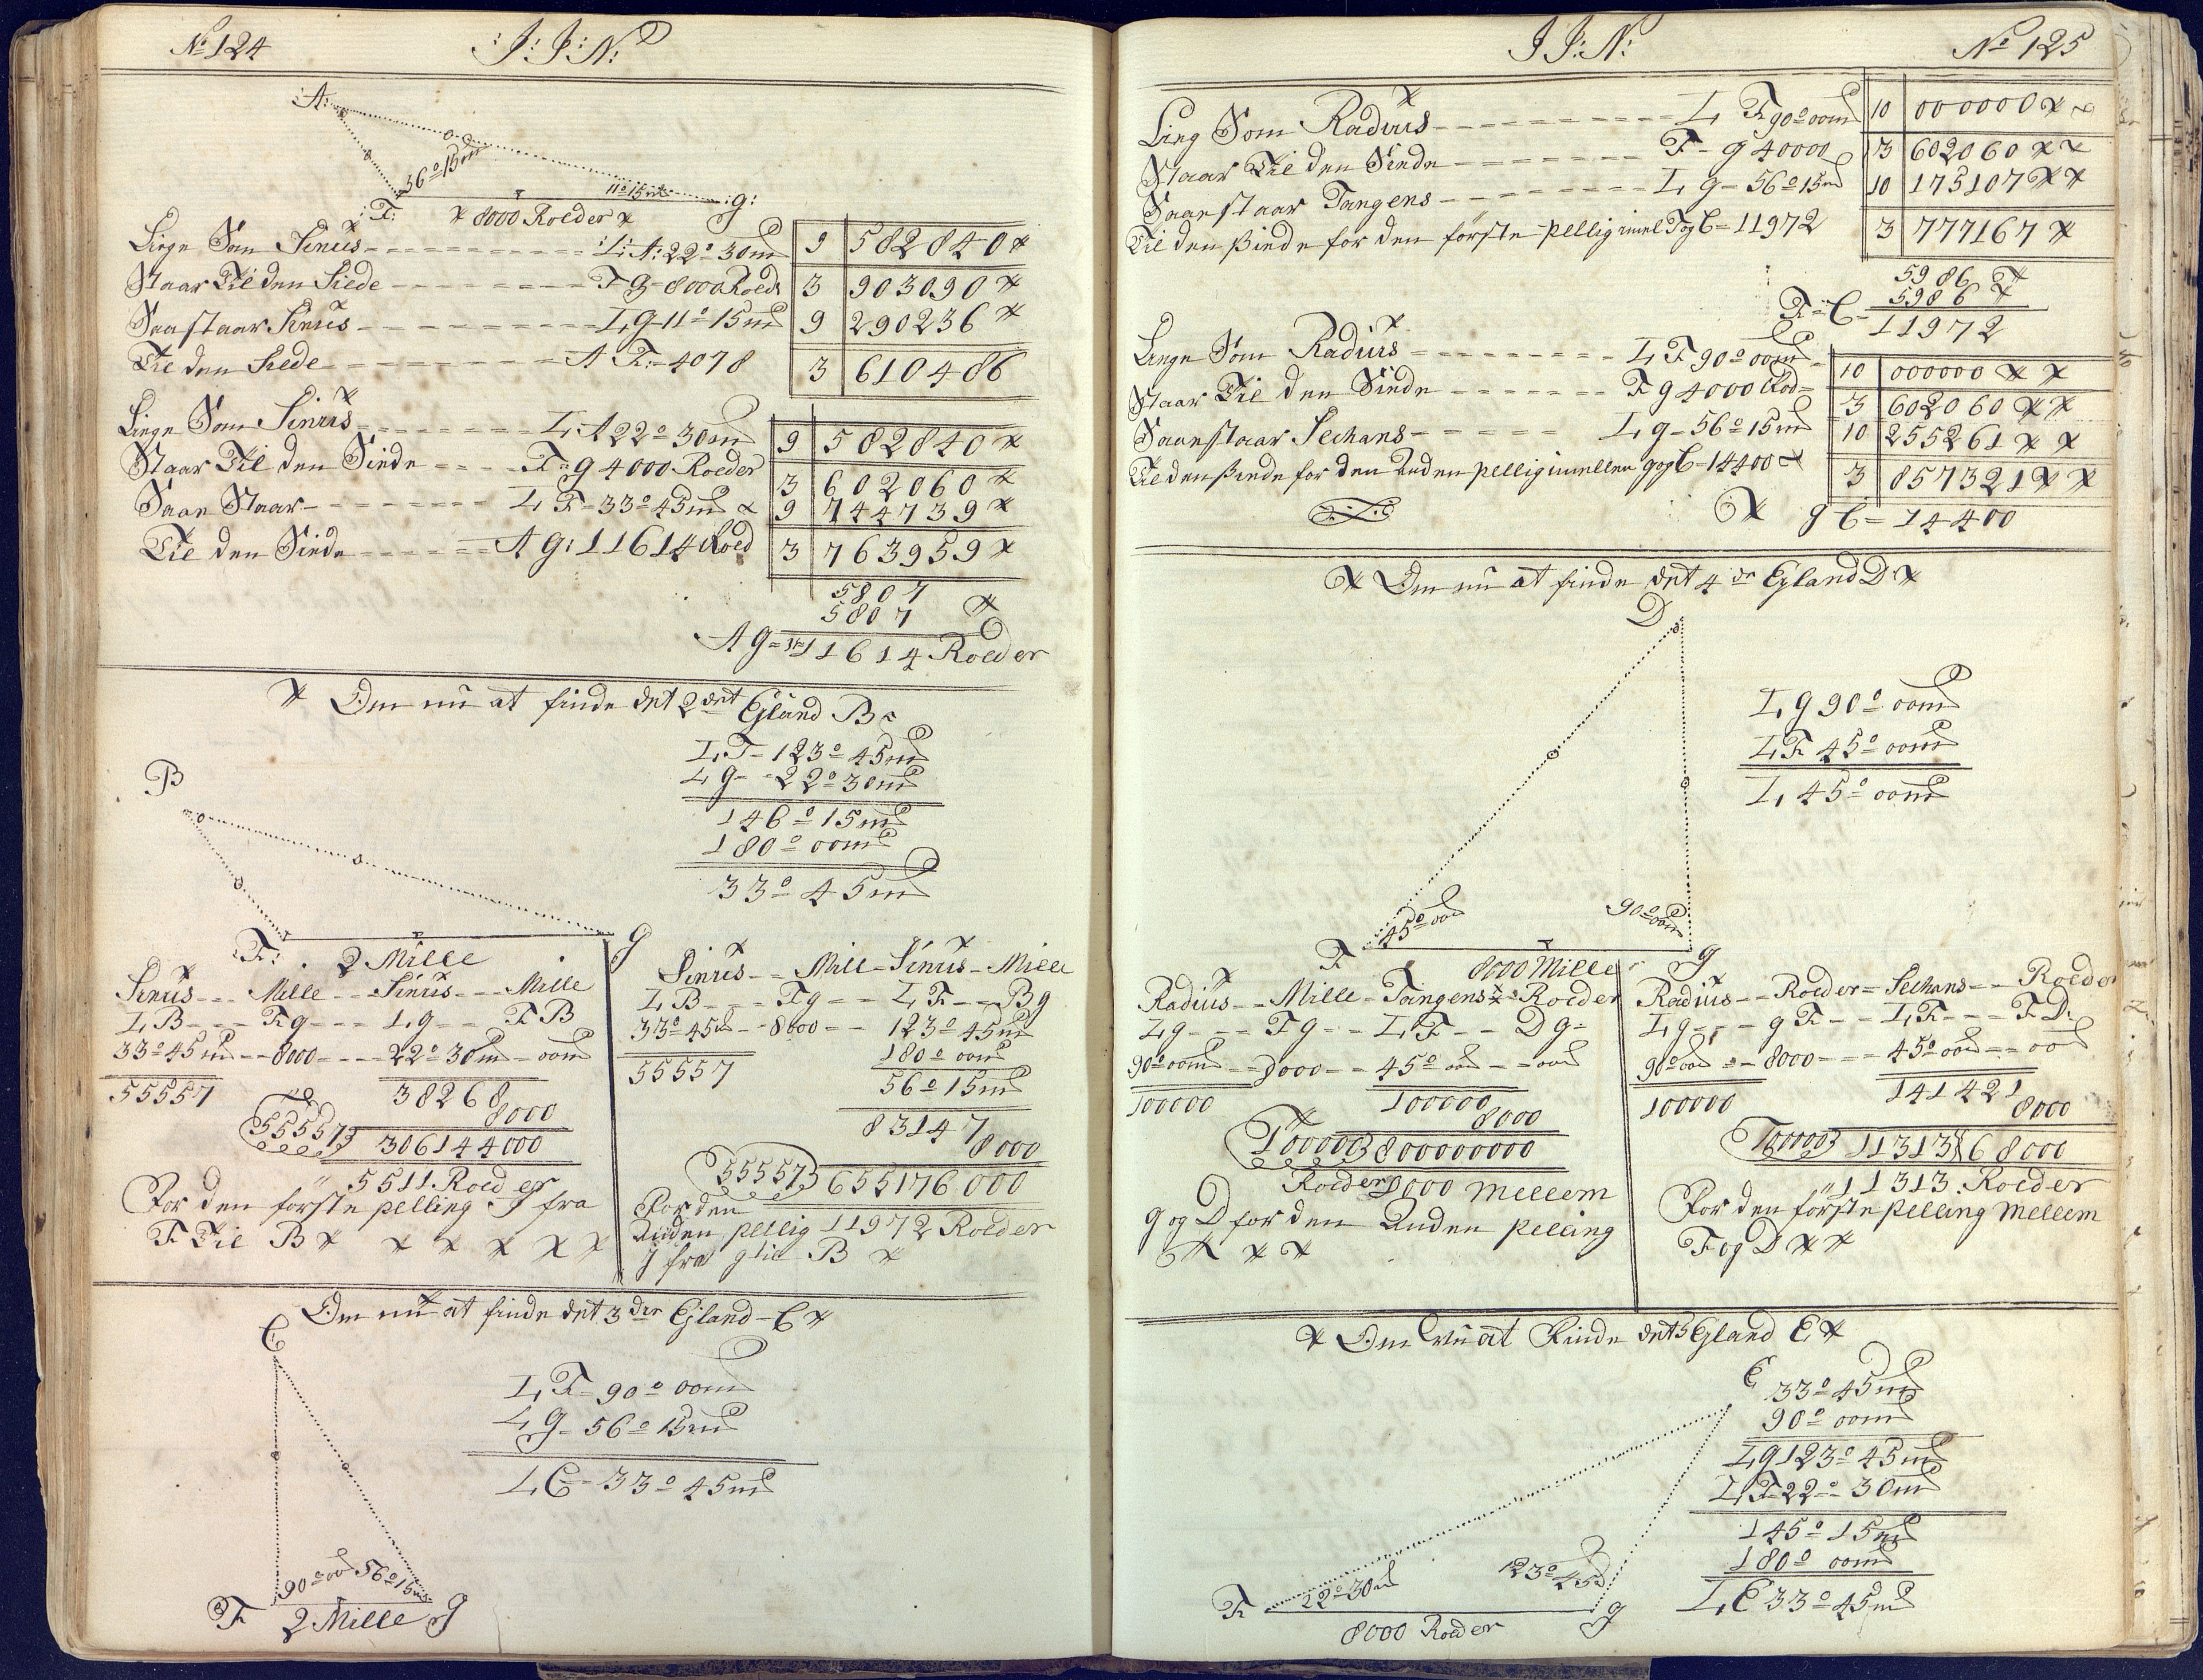 No 124 J: J: N:
A:
56° 15m
11° 15m
F: 8000 Roeder g:
Liege Som Sinus L A: 22° 30m 9 582840
Staar Til den Siede F g 8000 Roed 3 903090
Saa staar Sinus L g 11° 15m 9 290236
Til den Siede A F: 4078 3 610486
Liege Som Sinus L A 22° 30m 9 582840
Staar Til den Siede F g 4000 Roeder 3 602060
Saae Staar L F 33° 45m 9 744739
Til den Siede A g: 11614 Roed 3 763959
5807
5807
A g = 11614 Roeder
Om nu at finde det 2det Eyland B
L F 123° 45m
L g 22° 30m
146° 15m
180° 00m
33° 45m
B
F: 2 Mille g
Sinus Mille Sinus Mille
L B F g L g F B
33° 45m 8000 22° 30m 00m
55557 38268
8000
55557 306144000
5511 Roeder
For den første pelling J fra
F Til B
Sinus Mill Sinus Mille
L B F g L F B g
33° 45m 8000 123° 45m
180° 00m
55557 56° 15m
83147
8000
55557 655176000
For den
Anden pellig 11972 Roeder
J fra g til B
Om nu at finde det 3die Eyland C
C
L F 90° 00m
L g 56° 15m
L C 33° 45m
90° 00 56° 15m
F 2 Mille g
J J: N: No 125
Lieg Som Radius L F 90° 00m 10 000000
Staar Til den Siede F g 40000 3 602060
Saae staar Tangens L g 56° 15m 10 175107
Til den Siede for den første pellig imel F og C 11972 3 777167
5986
5986
F C 11972
Liege Som Radius L F 90° 00m 10 000000
Staar Til den Siede F g 4000 Rod 3 602060
Saae staar Sechans L g 56° 15m 10 255261
Til den Siede for den Anden pellig imellem g og C 14400 3 857321
g C = 14400
Om nu at finde det 4de Eyland D
D
L g 90° 00m
L F 45° 00m
L 45° 00m
45° 00 90° 00m
F 8000 Mille g
Radius Mille Tangens Roeder
L g F g L F D g
90° 00m 8000 45° 00 00
100000 100000
8000
100000 800000000
Roeder 8000 Mellem
g og D for den Anden peling
Radius Roeder Sechans Roeder
L g g F L F F D
90° 00 8000 45° 00 00
100000 141421
8000
100000 1131368000
11313 Roeder
For den første pelling Mellem
F og D
Om nu at Finde det 5 Eyland E
E 33° 45m
90° 00m
L g 123° 45m
L F 22° 30m
145° 15m
180° 00m
L E 33° 45m
22° 30m 123° 45
F 8000 Roeder g